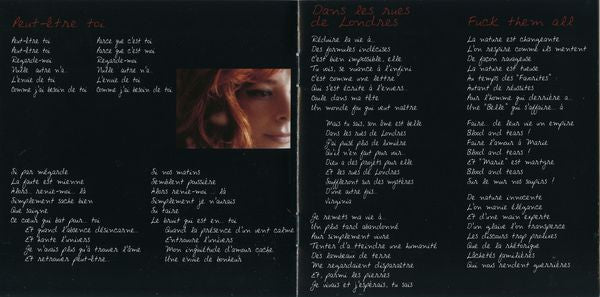 Peut-être toi
Peut-être toi
Peut-être toi
Regarde-moi
Nulle autre n'a...
L'envie de toi
Comme j'ai besoin de toi
Parce que c'est toi
Parce que c'est moi
Regarde-moi
Nulle autre n'a...
L'envie de toi
Comme j'ai besoin de toi
Si par mégarde
La faute est mienne
Alors... renie-moi... là
Simplement sache bien
Que saigne
Ce cœur qui bat pour... toi
Et quand l'absence désincarne...
Et hante l'univers
Je n'avais plus qu'à trouver l'âme
Et retrouver peut-être...
Si nos matins
Semblent poussière
Alors renie-moi ... là
Simplement je n'aurais
Su taire
Le bruit qui est en... toi
Quand la présence d'un vent calme
Entrouvre l'univers
Mon inquiétude d'amour cache
Une envie de bonheur
Dans les rues
de Londres
Réduire la vie à...
Des formules indécises
C'est bien impossible, elle
Tu vois, se nuance à l'infini
C'est comme une lettre
Qui s'est écrite à l'envers...
Coule dans ma tête
Un monde fou qui veut naître
Mais tu sais, son âme est belle
Dans les rues de Londres
J'ai puisé plus de lumière
Qu'il n'en faut pour voir...
Dieu a des projets pour elle
Et les rues de Londres
Souffleront sur des mystères
D'une autre fois
Virginia
Je remets ma vie à...
Un plus tard abandonné
Pour simplement vivre
Tenter d'atteindre une humanité
Des lambeaux de terre
Me regardaient disparaître
Et, parmi les pierres
Je vivais et j'espérais, tu sais
Fuck them all
La nature est changeante
L'on respire comme ils mentent
De façon ravageuse
La nature est tueuse
Au temps des "Favorites" :
Autant de réussites
Pour l'homme qui derrière a...
Une "Belle" qui s'affaire... à
Faire... de leur vie un empire
Blood and tears !
Faire l'amour à Marie
Blood and tears !
Et "Marie" est martyre
Blood and tears !
Sur le mur nos soupirs !
De nature innocente
L'on manie élégance
Et d'une main experte
D'un glaive l'on transperce
Les discours trop prolixes
Que de la rhétorique
Lâchetés familières
Qui nous rendent guerrières